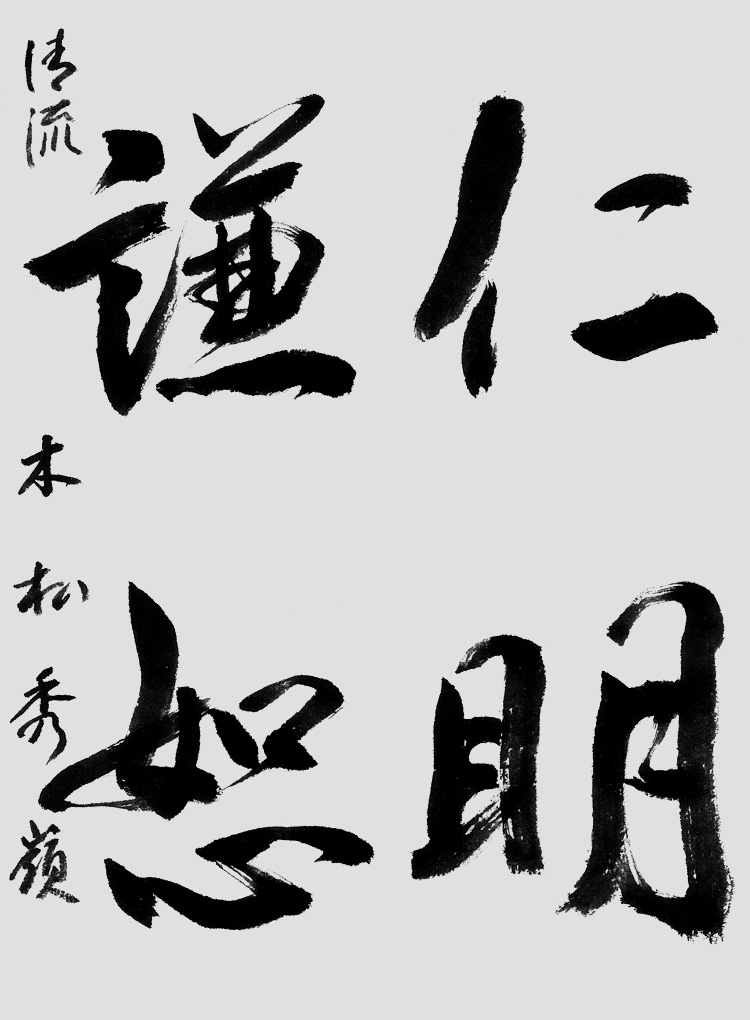 仁明
謙恕
清流 木松秀嶺